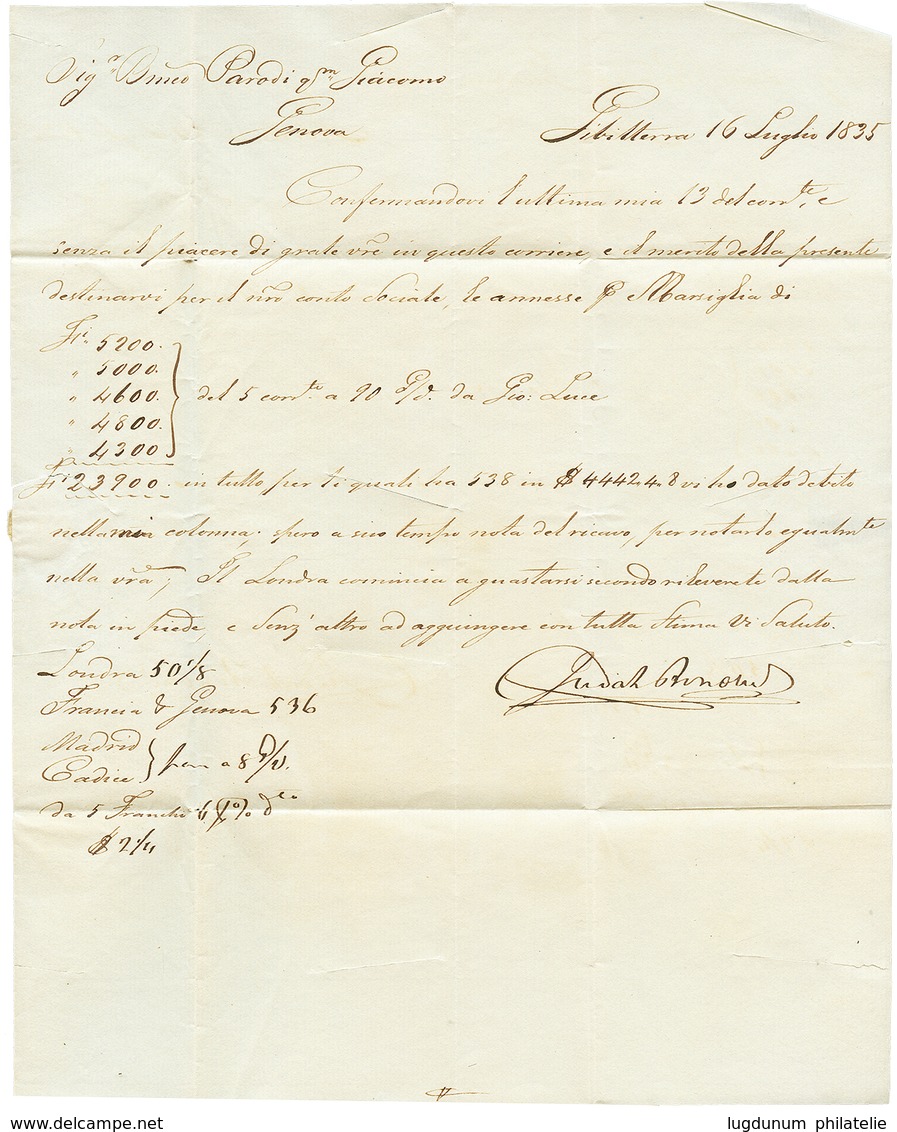 Sig.r Bmeo Parodi qm Giacomo
Genova
Gibilterra 16 Luglio 1835
Confermandovi l'ultima mia 13 del corrte, e
senza il piacere di grate vre in questo corriere, e il merito della presente
destinarvi per il nro conto Sociale, le annesse p Marsiglia di
Fi 5200.
" 5000.
" 4600.
" 4800.
" 4300
del 5 corrte a 90 d/d. da Gio: Luce
Fi 23900. in tutto per li quali ha 538 in $ 4442.4.8 vi ho dato debito
nella mia colonna. spero a suo tempo nota del ricavo, per notarlo egualmte
nella vra; Il Londra comincia a guastarsi secondo rileverete dalla
nota in piede, e Senz'altro ad aggiungere con tutta Stima Vi Saluto.
Judah
Londra 50 1/8
Francia & Genova 536
Madrid
Cadice
pari a 8 d/v.
da 5 Franchi
$ 2 1/4
www.delcampe.net
lugdunum philatelie